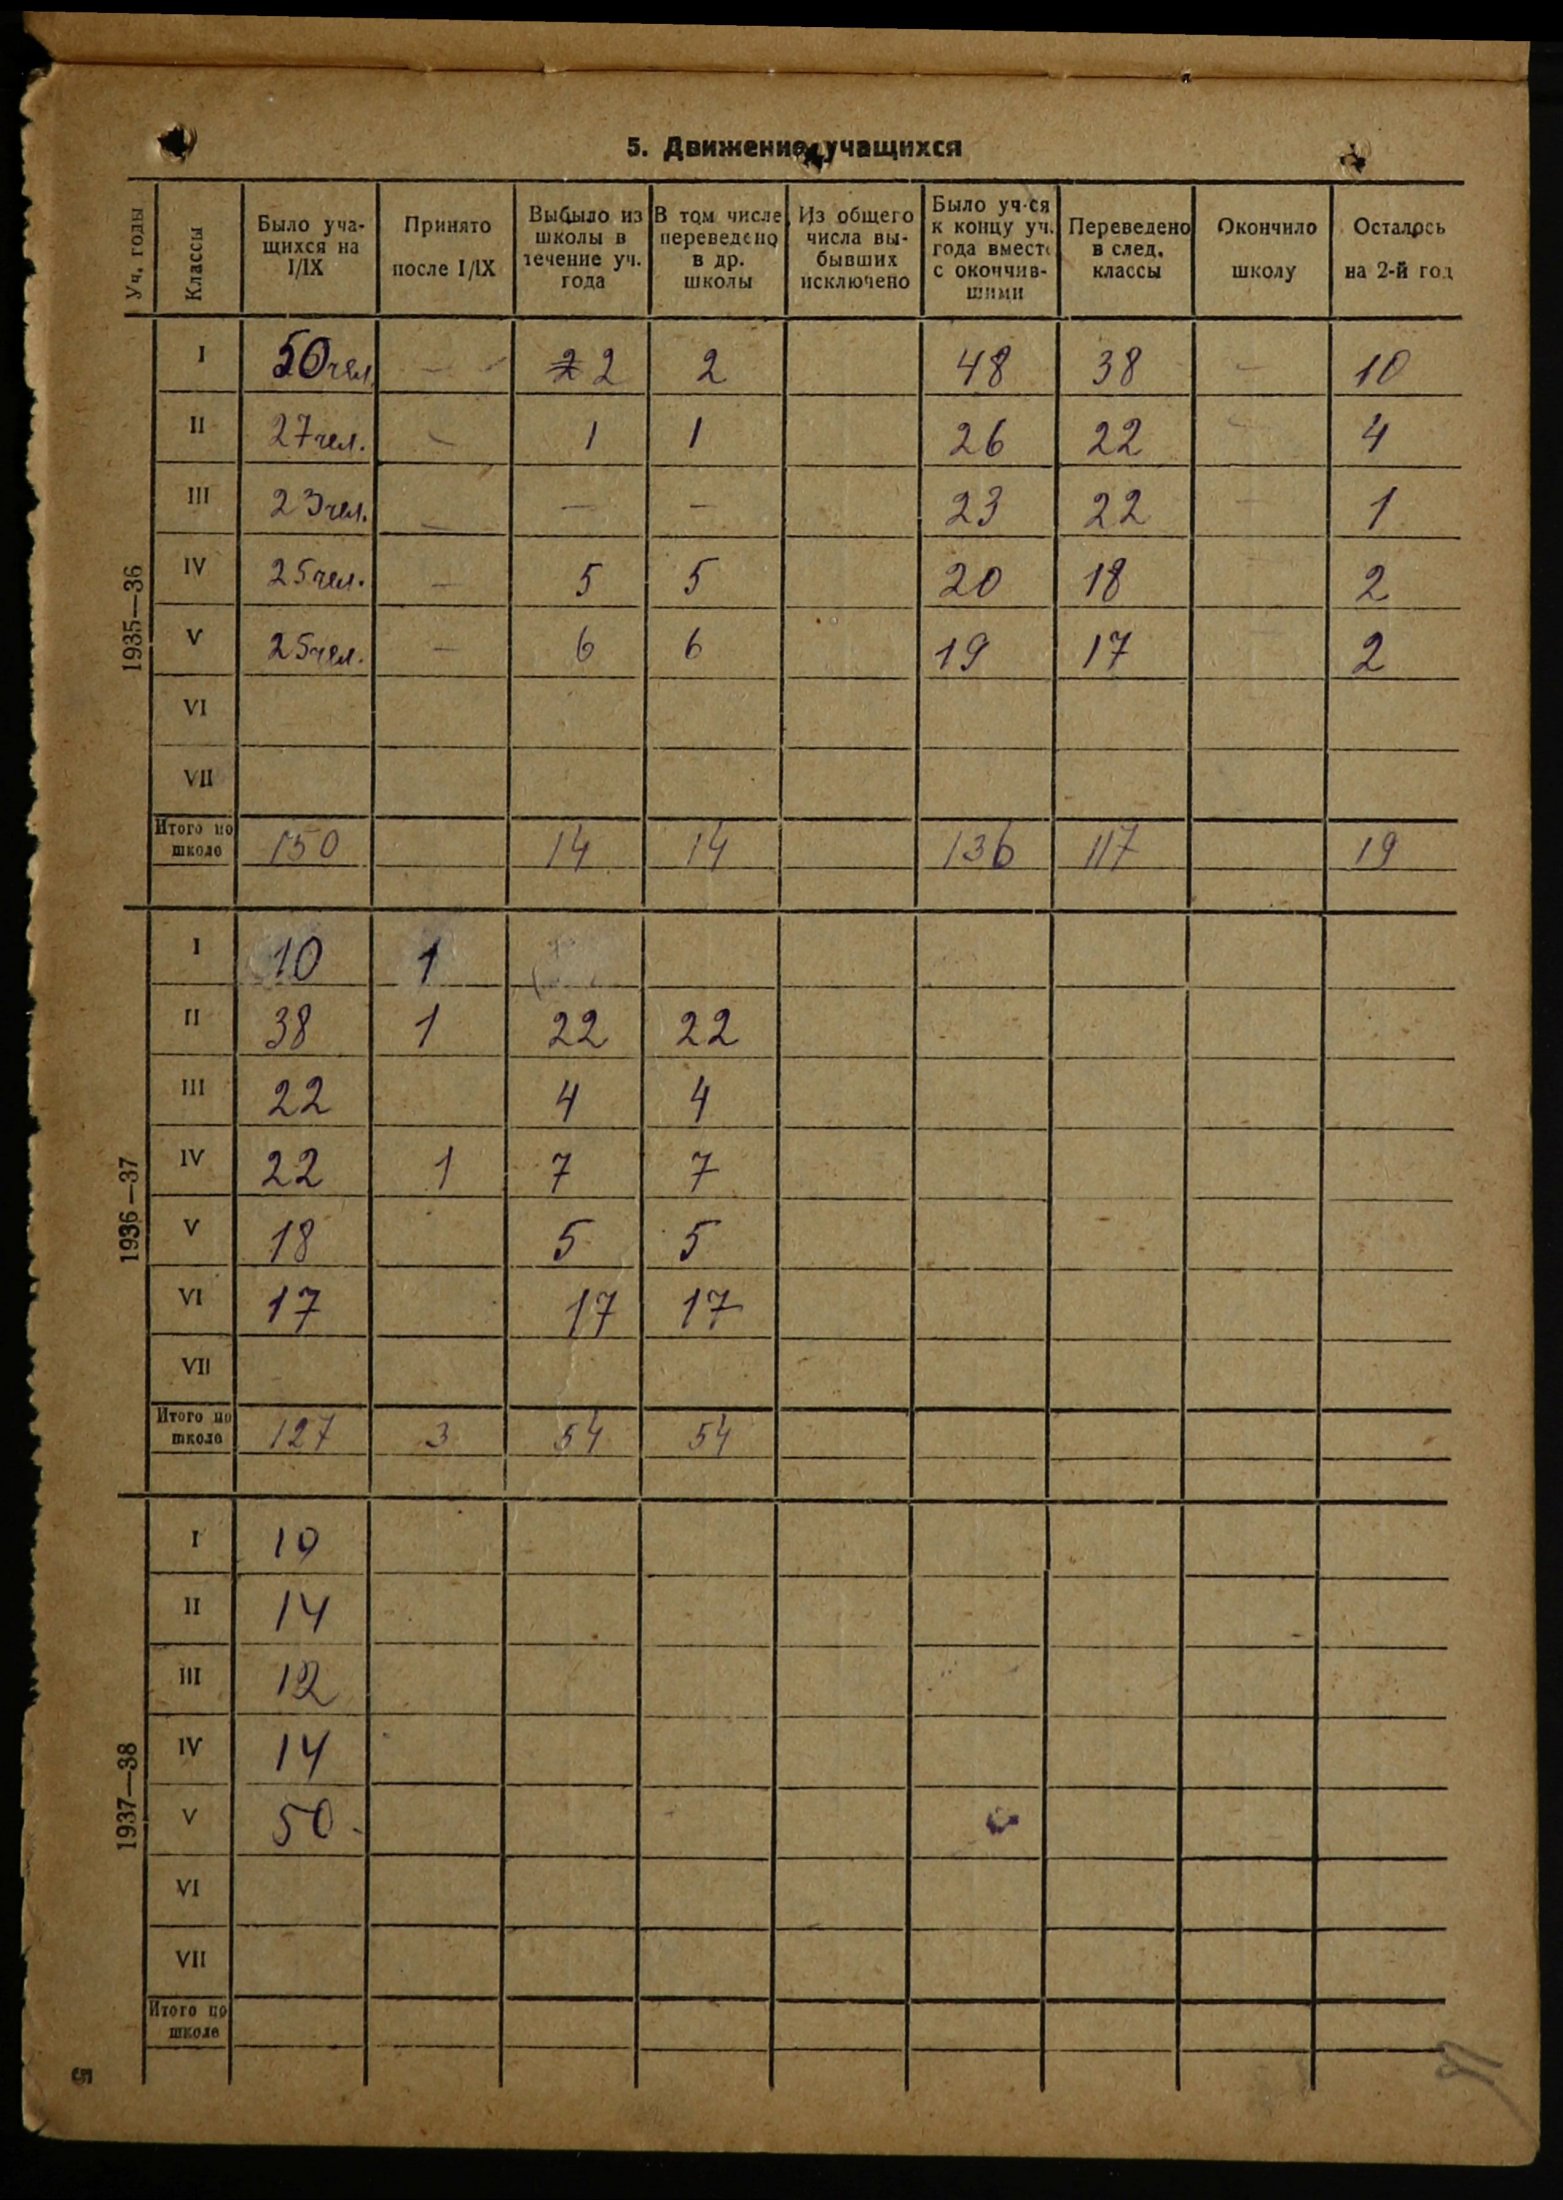 5. Движение учащихся
Уч. годы | Классы | Было уча-щихся на I/IX | Принято после I/IX | Выбыло из школы в течение уч. года | В том числе переведено в др. школы | Из общего числа вы-бывших исключено | Было уч-ся к концу уч. года вместе с окончив-шими | Переведено в след. классы | Окончило школу | Осталось на 2-й год
1935—36
I | 50 чел. | — | 2 | 2 | | 48 | 38 | — | 10
II | 27 чел. | — | 1 | 1 | | 26 | 22 | — | 4
III | 23 чел. | — | — | — | | 23 | 22 | — | 1
IV | 25 чел. | — | 5 | 5 | | 20 | 18 | | 2
V | 25 чел. | — | 6 | 6 | | 19 | 17 | | 2
VI
VII
Итого по школе | 150 | | 14 | 14 | | 136 | 117 | | 19
1936—37
I | 10 | 1
II | 38 | 1 | 22 | 22
III | 22 | | 4 | 4
IV | 22 | 1 | 7 | 7
V | 18 | | 5 | 5
VI | 17 | | 17 | 17
VII
Итого по школе | 127 | 3 | 54 | 54
1937—38
I | 10
II | 14
III | 12
IV | 14
V | 50
VI
VII
Итого по школе
5